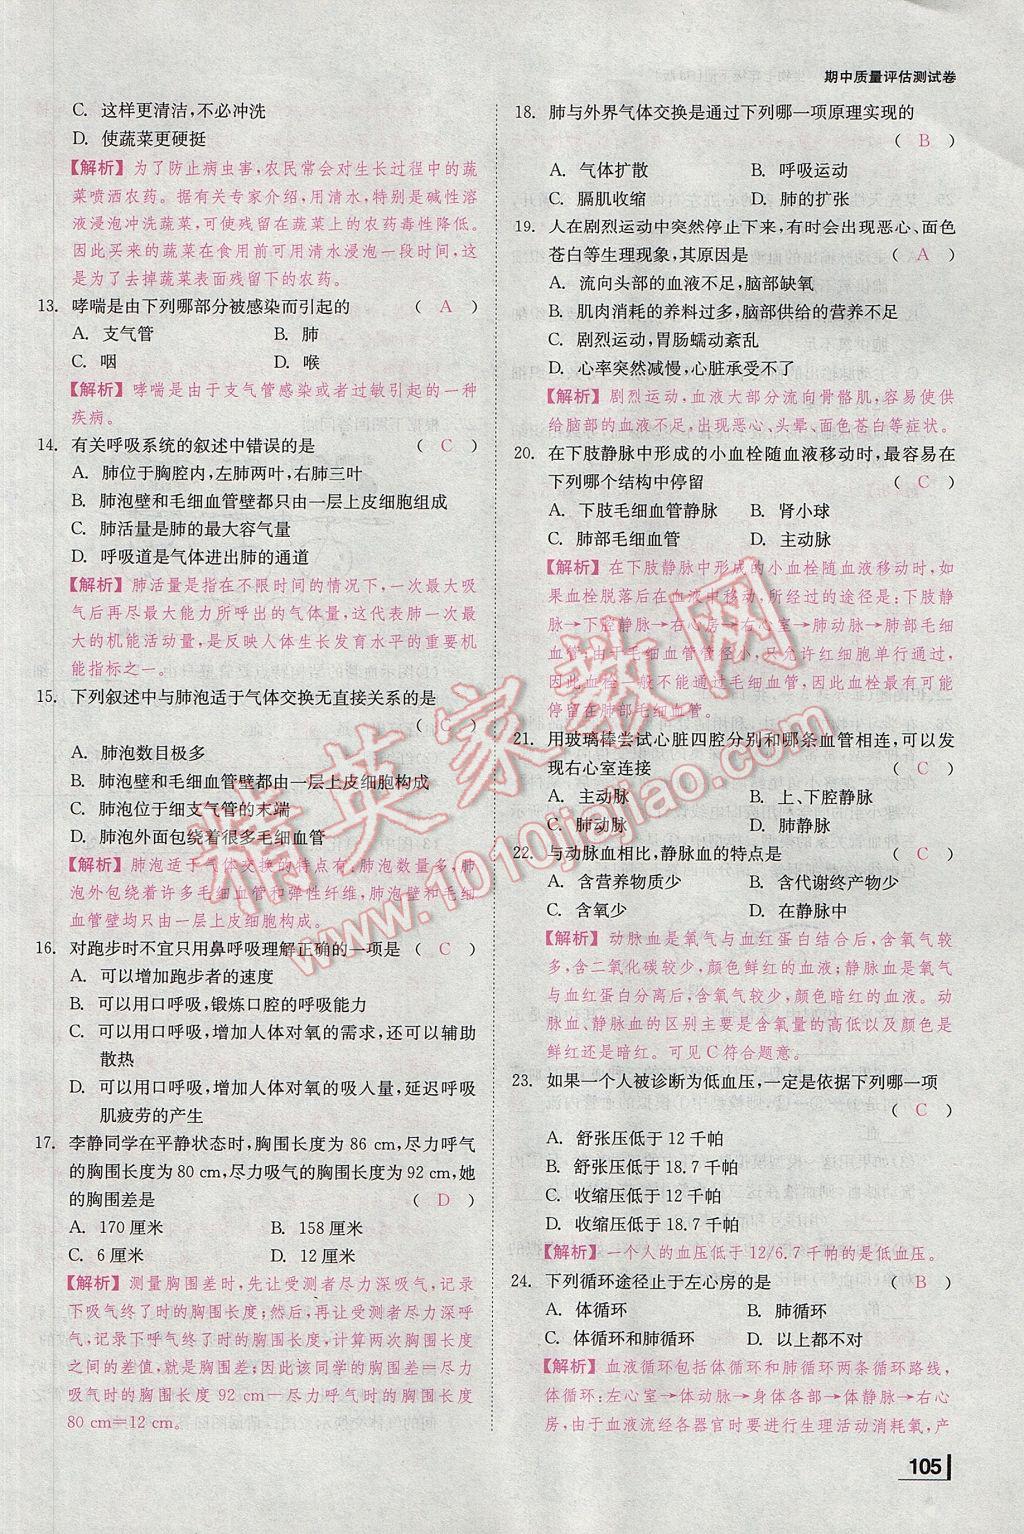 期中质量评估测试卷
C. 这样更清洁,不必冲洗
D. 使蔬菜更硬挺
【解析】为了防止病虫害,农民常会对生长过程中的蔬
菜喷洒农药。据有关专家介绍,用清水,特别是碱性溶
液浸泡冲洗蔬菜,可使残留在蔬菜上的农药毒性降低。
因此买来的蔬菜在食用前可用清水浸泡一段时间,这
是为了去掉蔬菜表面残留的农药。
13. 哮喘是由下列哪部分被感染而引起的 ( A )
A. 支气管 B. 肺
C. 咽 D. 喉
【解析】哮喘是由于支气管感染或者过敏引起的一种
疾病。
14. 有关呼吸系统的叙述中错误的是 ( C )
A. 肺位于胸腔内,左肺两叶,右肺三叶
B. 肺泡壁和毛细血管壁都只由一层上皮细胞组成
C. 肺活量是肺的最大容气量
D. 呼吸道是气体进出肺的通道
【解析】肺活量是指在不限时间的情况下,一次最大吸
气后再尽最大能力所呼出的气体量,这代表肺一次最
大的机能活动量,是反映人体生长发育水平的重要机
能指标之一。
15. 下列叙述中与肺泡适于气体交换无直接关系的是
( C )
A. 肺泡数目极多
B. 肺泡壁和毛细血管壁都由一层上皮细胞构成
C. 肺泡位于细支气管的末端
D. 肺泡外面包绕着很多毛细血管
【解析】肺泡适于气体交换的特点有:肺泡数量多,肺
泡外包绕着许多毛细血管和弹性纤维,肺泡壁和毛细
血管壁均只由一层上皮细胞构成。
16. 对跑步时不宜只用鼻呼吸理解正确的一项是 ( C )
A. 可以增加跑步者的速度
B. 可以用口呼吸,锻炼口腔的呼吸能力
C. 可以用口呼吸,增加人体对氧的需求,还可以辅助
散热
D. 可以用口呼吸,增加人体对氧的吸入量,延迟呼吸
肌疲劳的产生
17. 李静同学在平静状态时,胸围长度为 86 cm,尽力呼气
的胸围长度为 80 cm,尽力吸气的胸围长度为 92 cm,她
的胸围差是 ( D )
A. 170 厘米 B. 158 厘米
C. 6 厘米 D. 12 厘米
【解析】测量胸围差时,先让受测者尽力深吸气,记录
下吸气终了时的胸围长度;然后,再让受测者尽力深呼
气,记录下呼气终了时的胸围长度,计算两次胸围长度
之间的差值,就是胸围差;因此该同学的胸围差=尽力
吸气时的胸围长度 92 cm-尽力呼气时的胸围长度
80 cm=12 cm。
18. 肺与外界气体交换是通过下列哪一项原理实现的
( B )
A. 气体扩散 B. 呼吸运动
C. 膈肌收缩 D. 肺的扩张
19. 人在剧烈运动中突然停止下来,有时会出现恶心、面色
苍白等生理现象,其原因是 ( A )
A. 流向头部的血液不足,脑部缺氧
B. 肌肉消耗的养料过多,脑部供给的营养不足
C. 剧烈运动,胃肠蠕动紊乱
D. 心率突然减慢,心脏承受不了
【解析】剧烈运动,血液大部分流向骨骼肌,容易使供
给脑部的血液不足,出现恶心、头晕、面色苍白等症状。
20. 在下肢静脉中形成的小血栓随血液移动时,最容易在
下列哪个结构中停留 ( C )
A. 下肢毛细血管静脉 B. 肾小球
C. 肺部毛细血管 D. 主动脉
【解析】在下肢静脉中形成的小血栓随血液移动时,如
果血栓脱落后在血液中移动,所经过的途径是:下肢静
脉→下腔静脉→右心房→右心室→肺动脉→肺部毛细
血管;由于毛细血管管径小,只允许红细胞单行通过,
因此血栓一般不能通过毛细血管,因此血栓最有可能
停留在肺部毛细血管。
21. 用玻璃棒尝试心脏四腔分别和哪条血管相连,可以发
现右心室连接 ( C )
A. 主动脉 B. 上、下腔静脉
C. 肺动脉 D. 肺静脉
22. 与动脉血相比,静脉血的特点是 ( C )
A. 含营养物质少 B. 含代谢终产物少
C. 含氧少 D. 在静脉中
【解析】动脉血是氧气与血红蛋白结合后,含氧气较
多,含二氧化碳较少,颜色鲜红的血液;静脉血是氧气
与血红蛋白分离后,含氧气较少,颜色暗红的血液。动
脉血、静脉血的区别主要是含氧量的高低以及颜色是
鲜红还是暗红。可见 C 符合题意。
23. 如果一个人被诊断为低血压,一定是依据下列哪一项
( C )
A. 舒张压低于 12 千帕
B. 舒张压低于 18.7 千帕
C. 收缩压低于 12 千帕
D. 收缩压低于 18.7 千帕
【解析】一个人的血压低于 12/6.7 千帕的是低血压。
24. 下列循环途径止于左心房的是 ( B )
A. 体循环 B. 肺循环
C. 体循环和肺循环 D. 以上都不对
【解析】血液循环包括体循环和肺循环两条循环路线,
体循环:左心室→体动脉→身体各部→体静脉→右心
房,由于血液流经各器官时要进行生理活动消耗氧,产
105
精英家教网
www.1010jiajiao.com